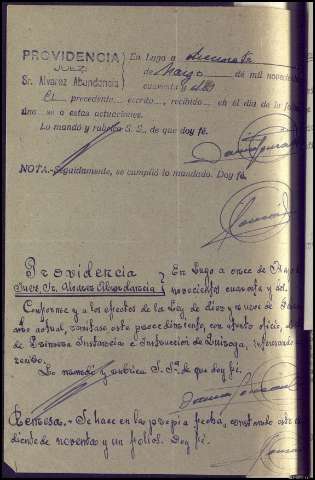 PROVIDENCIA
JUEZ
Sr. Alvarez Abundancia
En Lugo a
de Marzo de mil novecie
cuarenta y
El precedente escrito, recibido en el día de la fe
se a estas actuaciones.
Lo mandó y rubrica S. S., de que doy fé.
NOTA.-Seguidamente, se cumplió lo mandado. Doy fé.
Providencia
Juez Sr. Alvarez Abundancia
En Lugo a once de
novecientos cuarenta y
Conforme y a los efectos de la Ley de diez y nueve de
año actual, remítase este procedimiento, con atento oficio,
de Primera Instancia e Instrucción de Quiroga, interesando
recibo.
Lo mandó y rubrica S. Sª. de que doy fé.
Remesa.- Se hace en la propia fecha, constando este
diente de noventa y un folios. Doy fé.